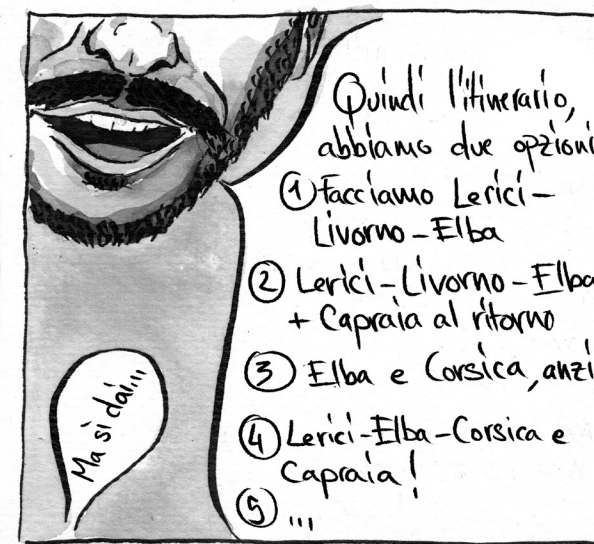 Quindi l'itinerario,
abbiamo due opzioni
① Facciamo Lerici-
Livorno-Elba
② Lerici-Livorno-Elba
+ Capraia al ritorno
③ Elba e Corsica, anzi
④ Lerici-Elba-Corsica e
Capraia!
⑤ ...
Ma sì dai...